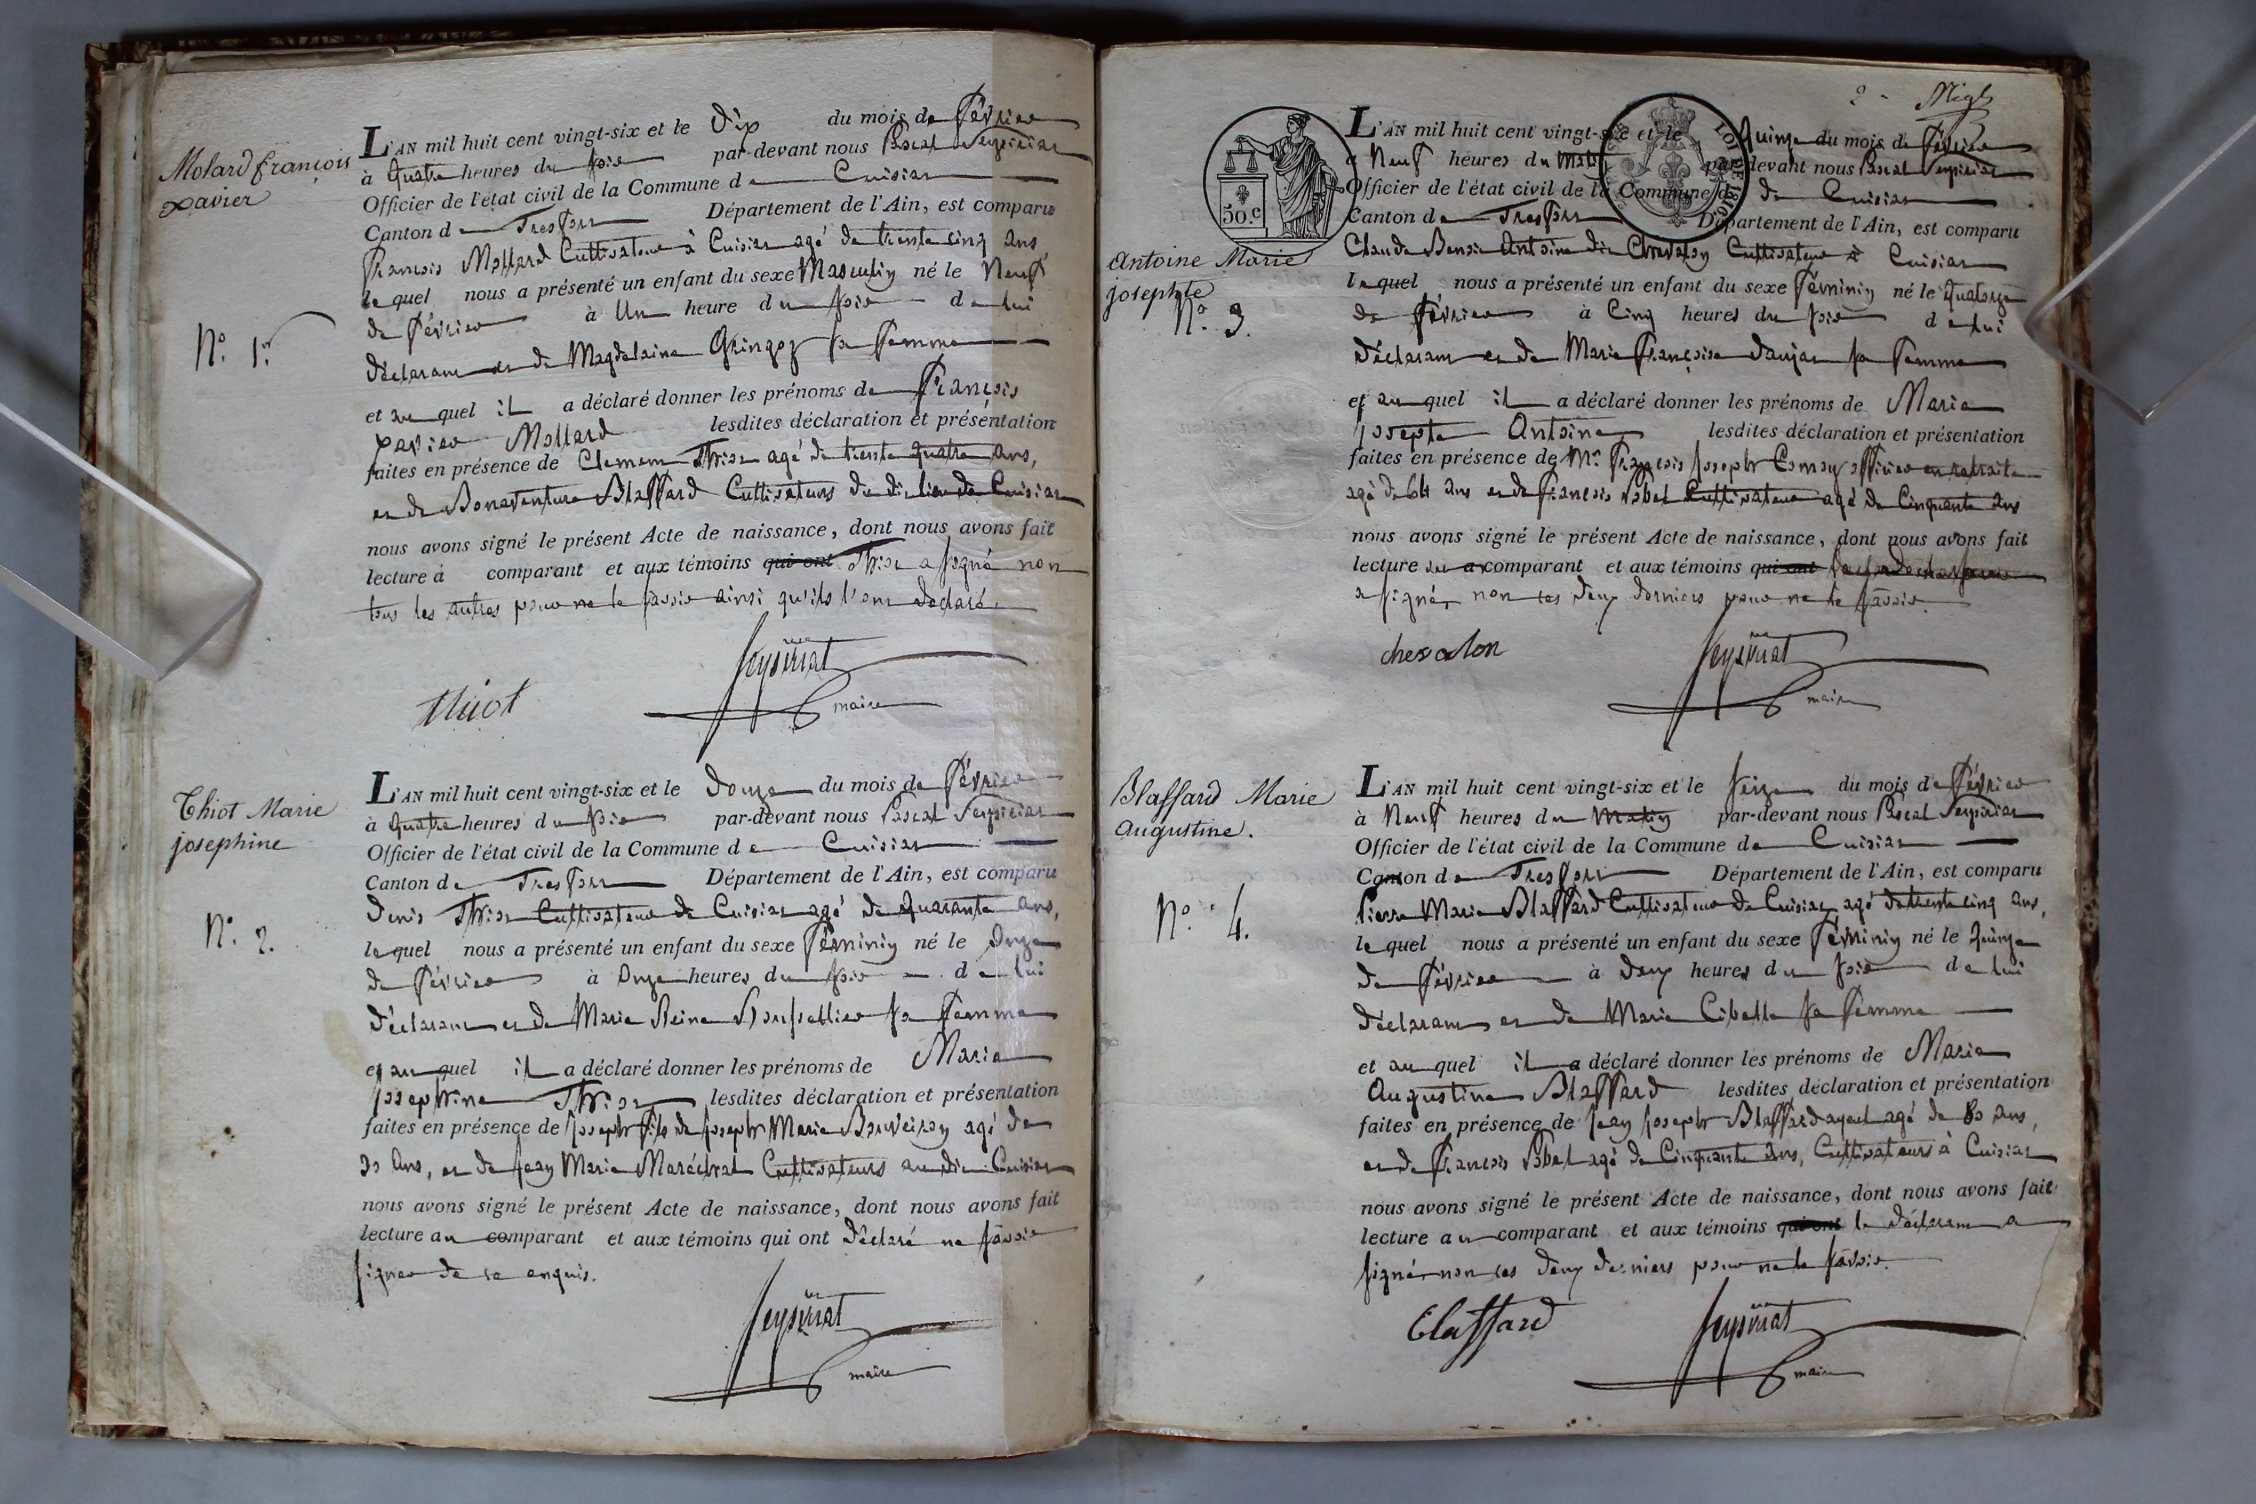 Molard françois
xavier
N.º 1.er
L'AN mil huit cent vingt-six et le Dix du mois de février
à Quatre heures du soir par-devant nous Pascal Seysiriat
Officier de l'état civil de la Commune de Cuisiat
Canton de Treffort Département de l'Ain, est comparu
françois Mollard Cultivateur à Cuisiat agé de trente cinq ans
lequel nous a présenté un enfant du sexe Masculin né le Neuf
de février à Une heure du soir de lui
déclarant et de Magdelaine Gringoz sa femme
et au quel il a déclaré donner les prénoms de François
xavier Mollard lesdites déclaration et présentation
faites en présence de Clement Thiot agé de trente quatre ans,
et de Bonaventure Blaffard Cultivateurs du dit lieu de Cuisiat
nous avons signé le présent Acte de naissance, dont nous avons fait
lecture à comparant et aux témoins qui ont Thiot a signé non
tous les autres pour ne le savoir ainsi qu'ils l'ont déclaré.
thiot
Seysiriat
maire
Thiot Marie
josephine
N.º 2.
L'AN mil huit cent vingt-six et le Douze du mois de février
à Quatre heures du soir par-devant nous Pascal Seysiriat
Officier de l'état civil de la Commune de Cuisiat
Canton de Treffort Département de l'Ain, est comparu
Denis Thiot Cultivateur de Cuisiat agé de Quarante ans,
lequel nous a présenté un enfant du sexe féminin né le Onze
de février à Onze heures du soir de lui
déclarant et de Marie Reine sa femme
et au quel il a déclaré donner les prénoms de Marie
josephine Thiot lesdites déclaration et présentation
faites en présence de joseph fils de joseph Marie agé de
30 ans, et de jean Marie Maréchal Cultivateurs audit Cuisiat
nous avons signé le présent Acte de naissance, dont nous avons fait
lecture au comparant et aux témoins qui ont déclaré ne savoir
signer de ce enquis.
Seysiriat
maire
2
50.c
LOI DE 1816
Antoine Marie
josephte
N.º 3.
L'AN mil huit cent vingt-six et le Quinze du mois de février
à Neuf heures du Matin par-devant nous Pascal Seysiriat
Officier de l'état civil de la Commune de Cuisiat
Canton de Treffort Département de l'Ain, est comparu
Claude Benoit Antoine dit Chevalon Cultivateur à Cuisiat
lequel nous a présenté un enfant du sexe féminin né le Quatorze
de février à Cinq heures du soir de lui
déclarant et de Marie françoise sa femme
et au quel il a déclaré donner les prénoms de Marie
josepte Antoine lesdites déclaration et présentation
faites en présence de Mr. françois joseph officier en retraite
agé de 64 ans et de françois Cultivateur agé de Cinquante ans
nous avons signé le présent Acte de naissance, dont nous avons fait
lecture au comparant et aux témoins qui ont
a signé, non ces deux derniers pour ne le savoir.
chevalon
Seysiriat
maire
Blaffard Marie
Augustine.
N.º 4.
L'AN mil huit cent vingt-six et le seize du mois de février
à Neuf heures du Matin par-devant nous Pascal Seysiriat
Officier de l'état civil de la Commune de Cuisiat
Canton de Treffort Département de l'Ain, est comparu
Pierre Marie Blaffard Cultivateur de Cuisiat agé de trente cinq ans,
lequel nous a présenté un enfant du sexe féminin né le Quinze
de février à deux heures du soir de lui
déclarant et de Marie Cibelle sa femme
et au quel il a déclaré donner les prénoms de Marie
Augustine Blaffard lesdites déclaration et présentation
faites en présence de jean joseph Blaffard ayeul agé de 80 ans,
et de françois agé de Cinquante ans, Cultivateurs à Cuisiat
nous avons signé le présent Acte de naissance, dont nous avons fait
lecture au comparant et aux témoins qui ont le déclarant a
signé non ces deux derniers pour ne le savoir.
Blaffard
Seysiriat
maire